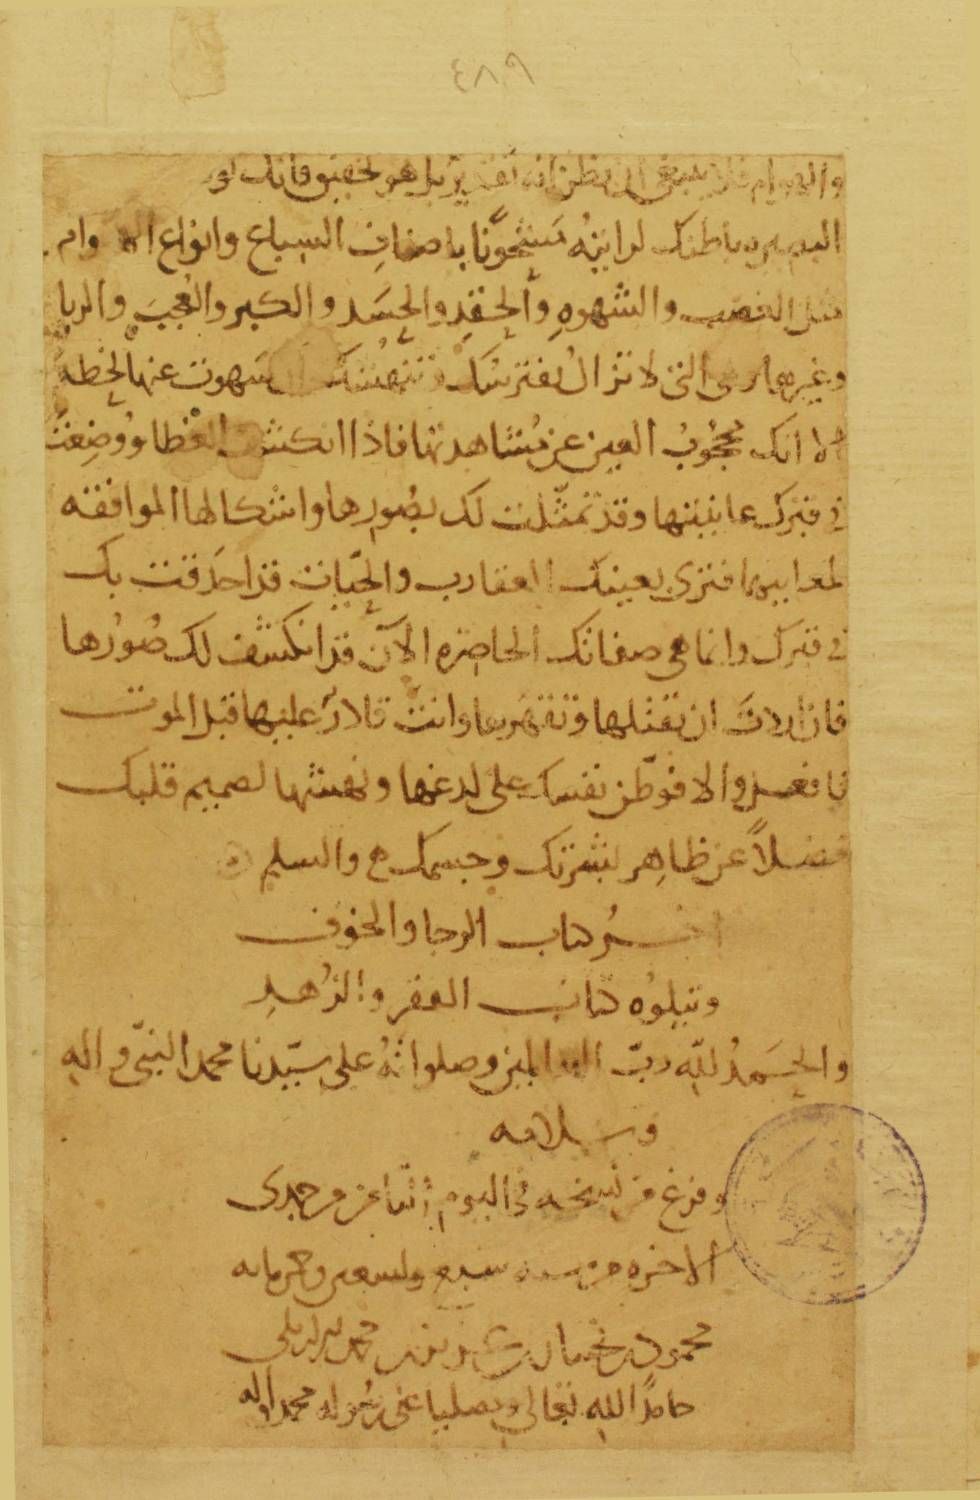 ٤٨٩
والهوام فلا ينبغي ان تظن انه تقدير بل هو تحقيق فانك لو
البصيره باطنك لرايته مشحونا باصناف السباع وانواع الهوام
مثل الغضب والشهوهِ والحِقدِ والحسَد والكبر والعُجبَ والريا
وغيرها وهى التى لا تزالُ تفترسُك وتنهشك ان سهوت عنها لحظة
الا انك محجُوبُ العين عن مُشاهدتها فاذا انكشف الغطا ووُضِعتَ
فى قبرك عاينتها وقد تمثّلت لك بصُورها واشكالها الموافقه
لمعانيها فترى بعينك العقارب والحيّات قد احدقت بك
فى قبرك وانما هى صفاتك الحاضره الآن قد انكشف لك صُورُها
فان اردتَ ان تقتلها وتقهرها وانتَ قادرٌ عليها قبل الموت
فافعل والا فوطّن نفسك على لدغها ونهشها لصميم قلبك
فضلاً عن ظاهِر بشرتك وجسمك والسلم
اخرُ كتاب الرجا والخوف
ويتلوُه كتاب الفقر والزُهدِ
والحَمدُ للّه ربّ العالمين وصلواتهُ على سيّدنا محمد النبىّ واله
وسلامه
وفرغ من نسخه فى اليوم اثنا عشر من جمدى
الاخره من سنه سبع وتسعين وخمسمايه
محمود بن
حامدًا للهِ تعالى ومصليا على رسُوله محمد واله